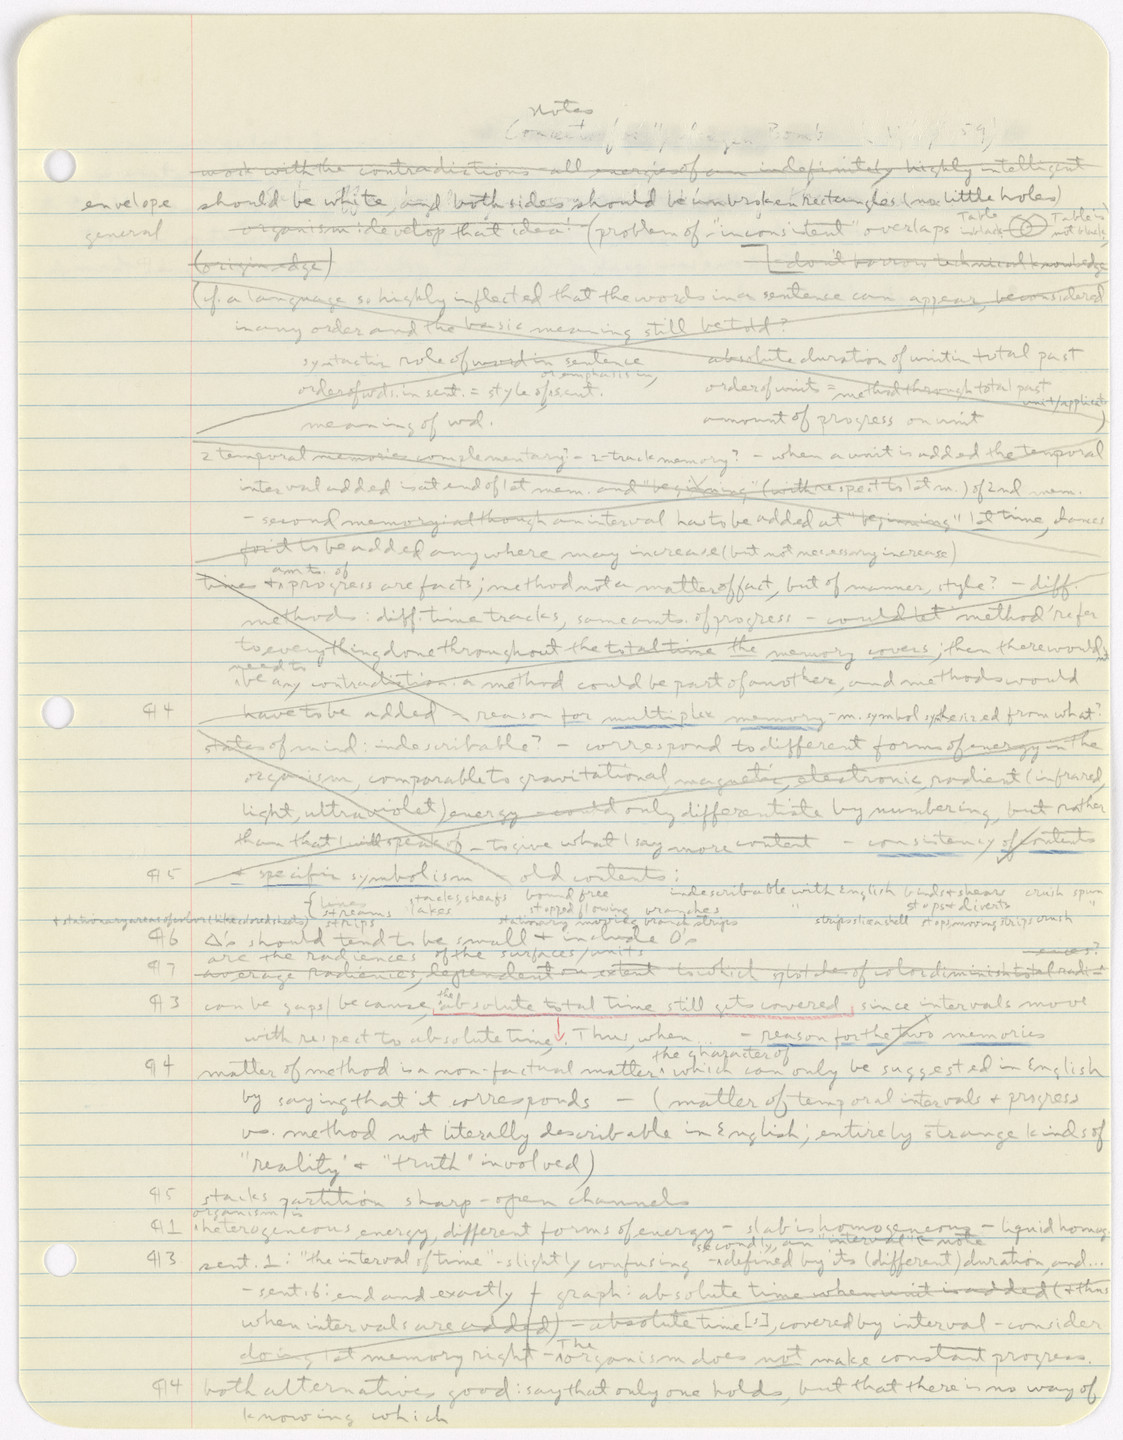 notes
work with the contradictions all energies of an indefinitely highly intelligent
envelope should be white, and both sides should be unbroken rectangles (no little holes)
general organism: develop that idea! (problem of "inconsistent" overlaps Table is black Table is not black)
(origin edge) don't borrow technical knowledge
(if a language so highly inflected that the words in a sentence can appear, be considered
in any order and the basic meaning still be told?
syntactic role of word in sentence absolute duration of unit in total past
order of wds. in sent. = style of sent. or emphasis in, order of units = method through total past
meaning of wd. amount of progress on unit
2 temporal memories complementary? - 2-track memory? - when a unit is added the temporal
interval added is at end of 1st mem. and "beginning" (with respect to 1st m.) of 2nd mem.
- second memory: although an interval has to be added at "beginning" 1st time, chances
for it to be added anywhere may increase (but not necessary increase)
times & amts. of progress are facts; method not a matter of fact, but of manner, style? - diff.
methods: diff. time tracks, same amts. of progress - could let 'method' refer
to everything done throughout the total time the memory covers; then there wouldn't
need to be any contradiction: a method could be part of another, and methods would
¶4 have to be added - reason for multiplex memory - m. symbol synthesized from what?
states of mind: indescribable? - correspond to different forms of energy in the
organism, comparable to gravitational, magnetic, electronic, radient (infrared,
light, ultraviolet) energy - could only differentiate by numbering, but rather
than that I will speak of - to give what I say more content - consistency of contents
¶5 & specific symbolism old contents:
lines stacks, sheafs bound free indescribable with English binds & shears crush spurn
streams lakes stopped flowing wranches " stops & diverts "
strips stationary moving branch strips
¶6 Δ's should tend to be small & include 0's
are the radiences of the surfaces/units
¶7 average radiences, dependent on extent to which splotches of color diminish total radi-
ences?
¶3 can be gaps/because, the absolute total time still gets covered, since intervals move
with respect to absolute time. Thus, when ... - reason for the two memories
¶4 matter of method is a non-factual matter, the character of which can only be suggested in English
by saying that it corresponds - (matter of temporal intervals & progress
vs. method not literally describable in English; entirely strange kinds of
"reality" & "truth" involved)
¶5 stacks partition sharp-open channels
¶1 organism is heterogeneous energy, different forms of energy - slab is homogeneous - liquid homog.
¶3 sent. 1: "the interval of time" - slightly confusing - secondly, an "interval" is note defined by its (different) duration, and...
- sent. 6: end and exactly + graph: absolute time when unit is added (& thus
when intervals are added) - absolute time [s], covered by interval - consider
doing 1st memory right - The organism does not make constant progress.
¶4 both alternatives good: say that only one holds, but that there is no way of
knowing which